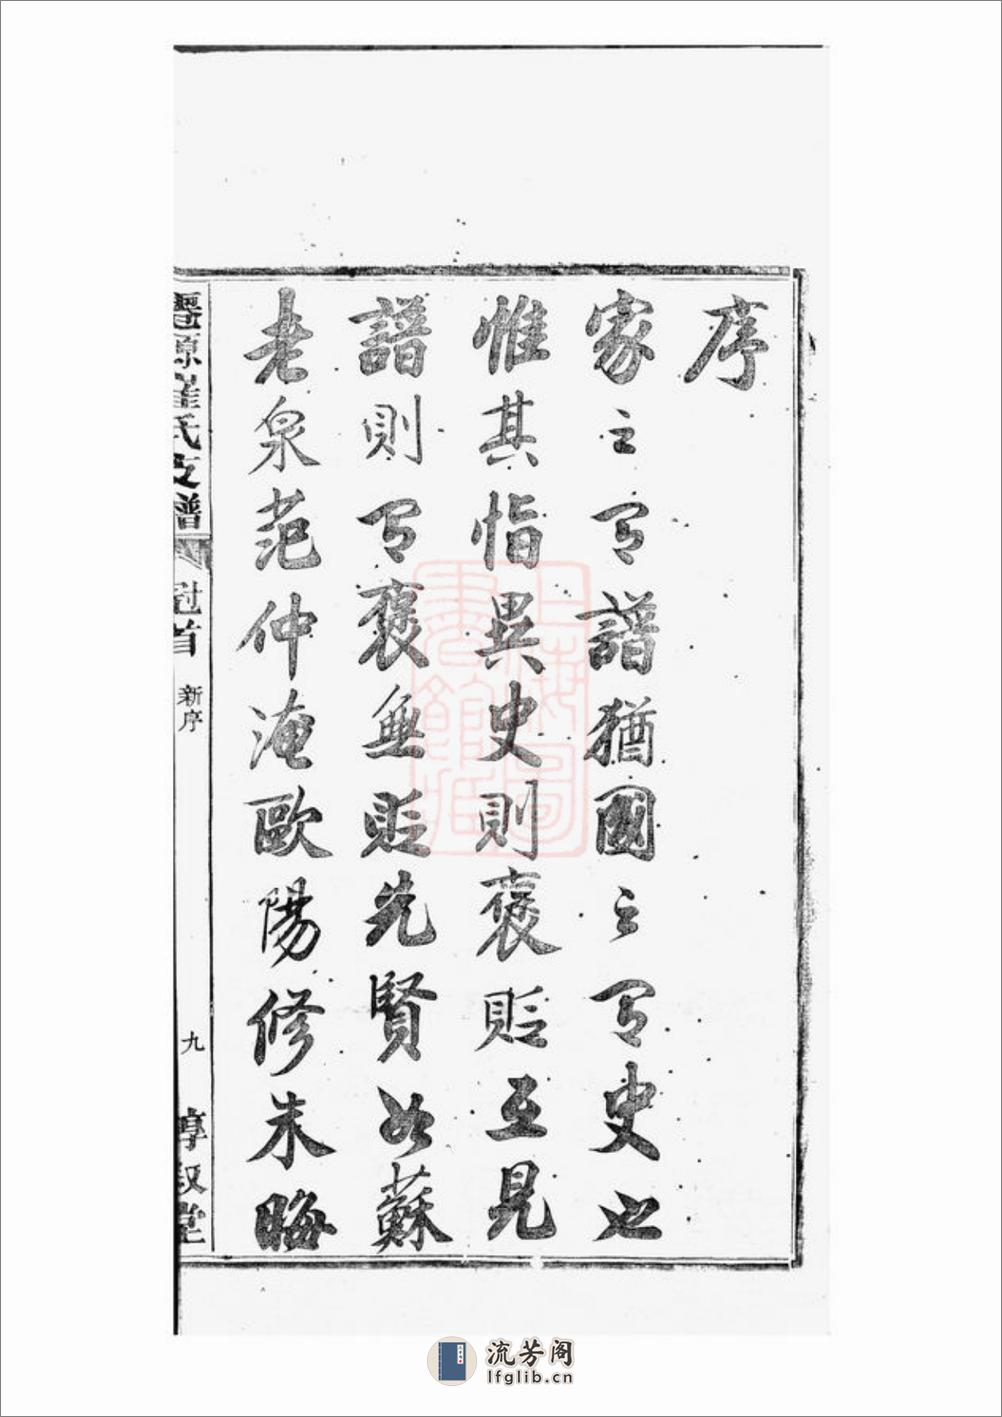 序
家之有譜猶國之有史也
惟其恉異史則褒貶互見
譜則有褒無貶先賢如蘇
老泉范仲淹歐陽修朱晦
源崔氏支譜
冠首
新序
九
惇叙堂
上海圖書館藏
流芳阁
lfglib.cn